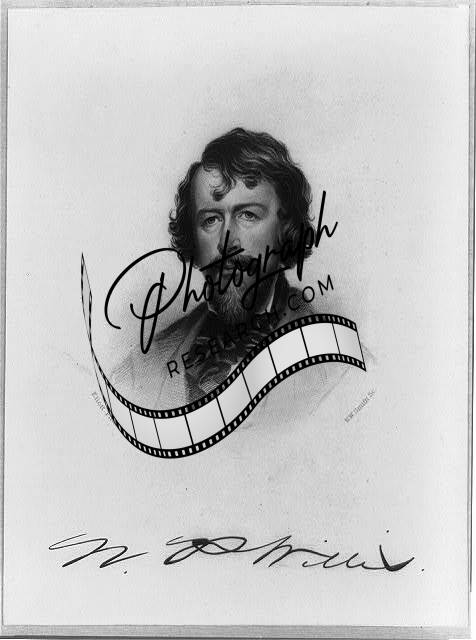 Photograph
RESEARCH.COM
Smith Sc.
N. P. Willis.